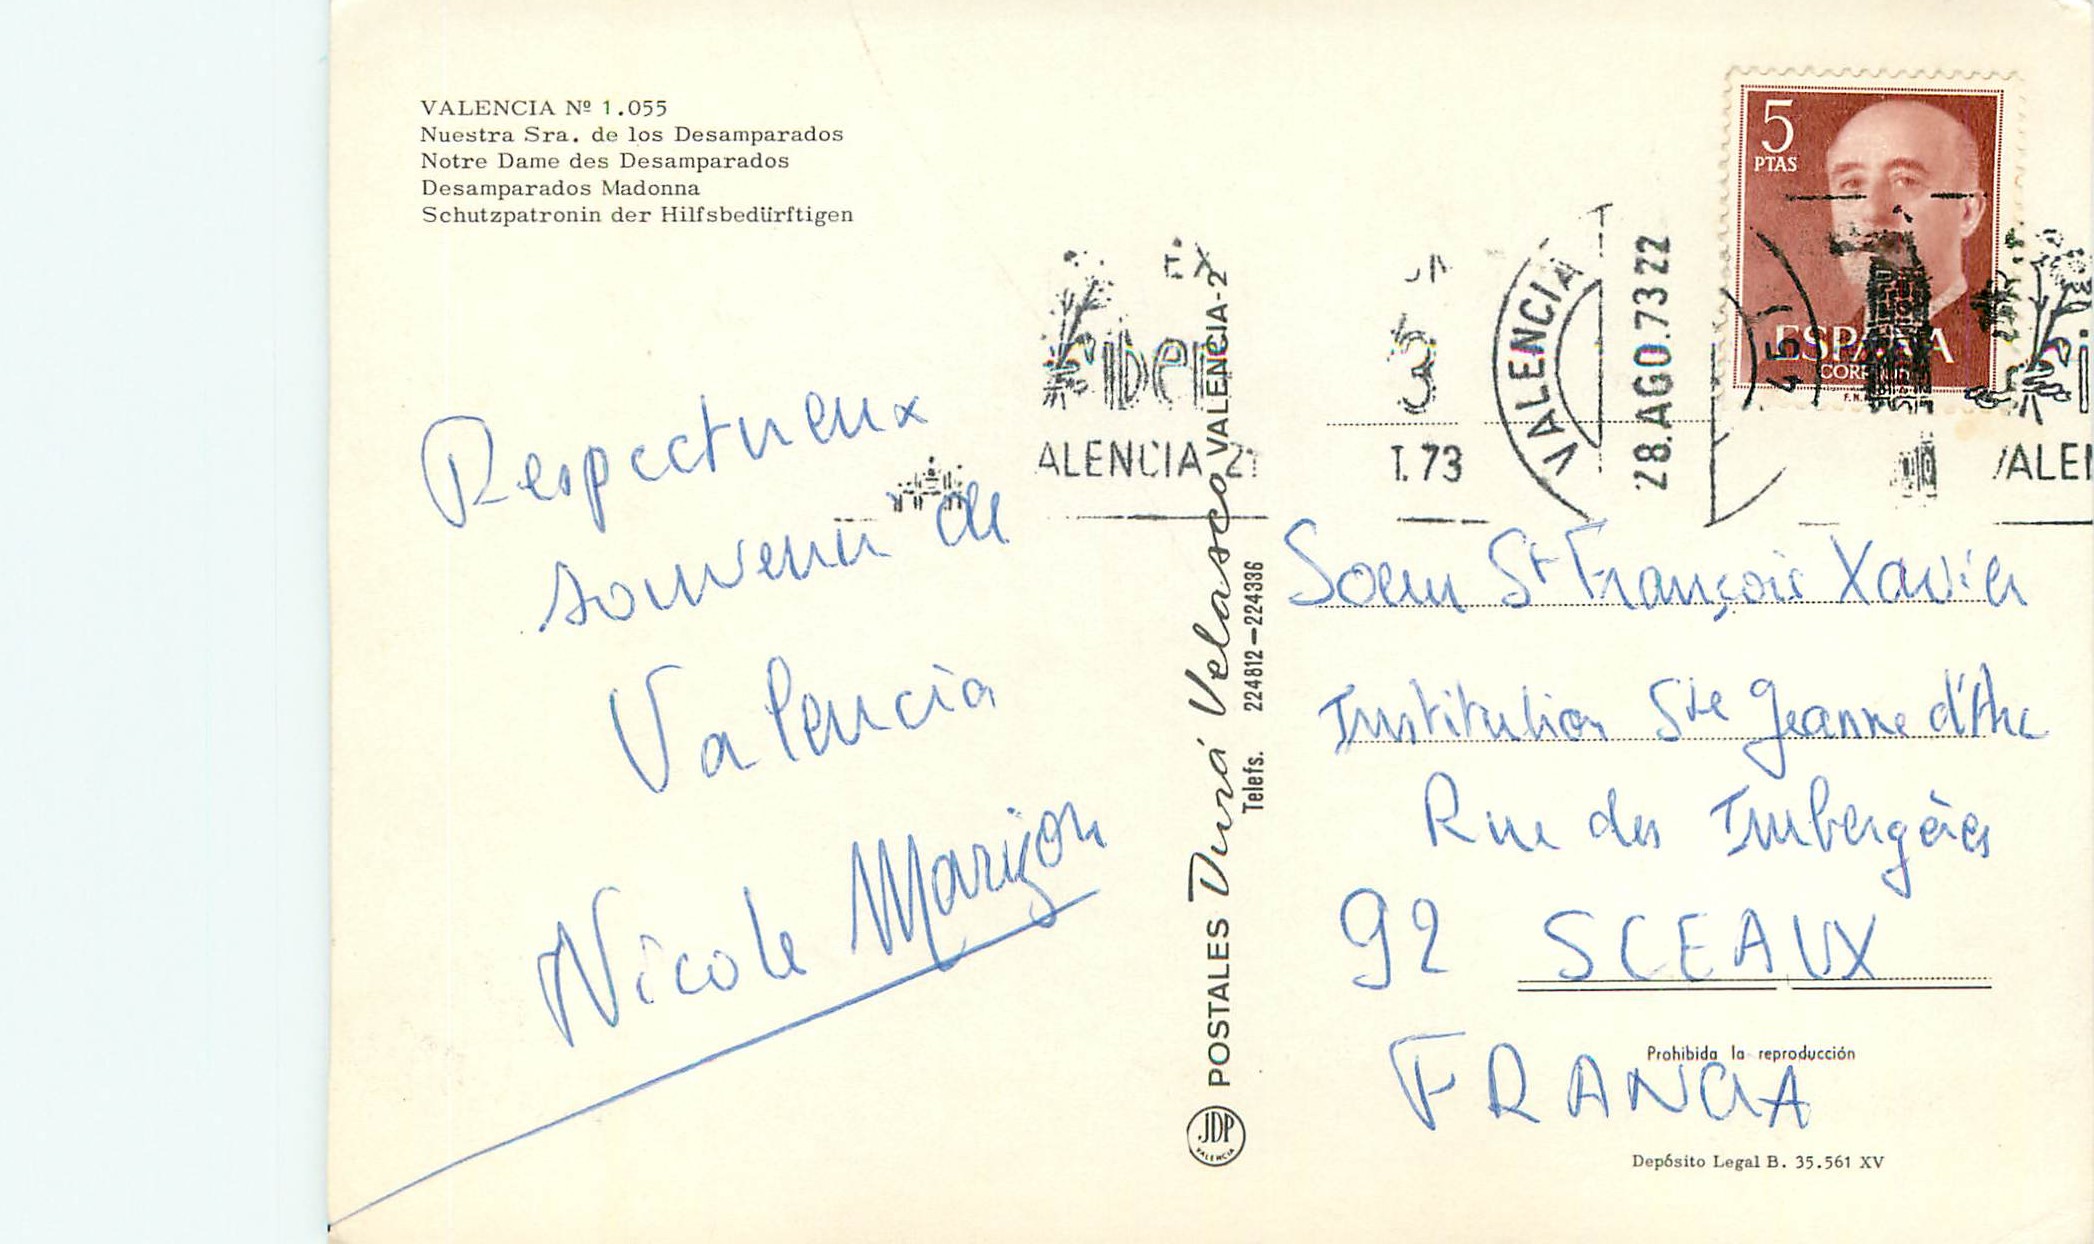 VALENCIA Nº 1.055
Nuestra Sra. de los Desamparados
Notre Dame des Desamparados
Desamparados Madonna
Schutzpatronin der Hilfsbedürftigen
5
PTAS
ESPAÑA
VALENCIA
28.AGO.73 22
ALENCIA
T.73
VALE
Respectueux
souvenir de
Valencia
Nicole
POSTALES Durá Velasco VALENCIA-2
Telefs. 224812-224336
JDP
VALENCIA
Soeur St François Xavier
Institution Ste Jeanne d'Arc
Rue des Imbergères
92 SCEAUX
FRANCIA
Prohibida la reproducción
Depósito Legal B. 35.561 XV